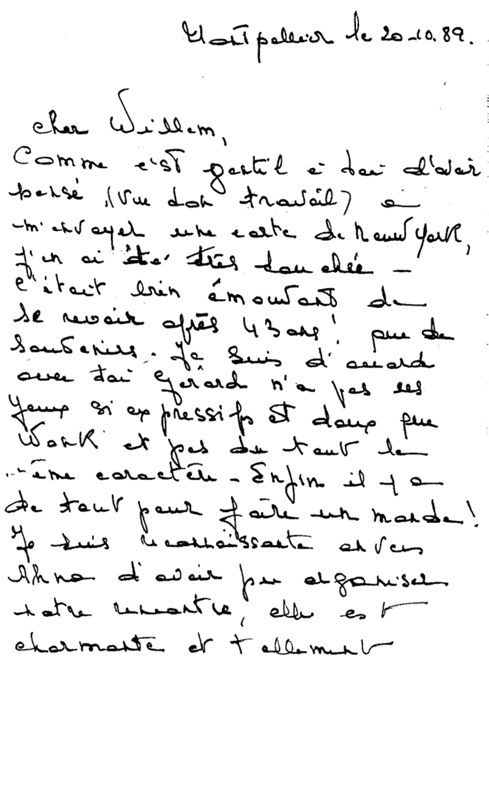 Montpellier le 20-10.89.
cher Willem,
Comme c'est gentil à toi d'avoir
pensé, (vu ton travail) à
m'envoyer une carte de Neuw York,
j'en ai été très touchée -
c'était bien émouvant de
se revoir après 43 ans! que de
souvenirs. Je suis d'accord
avec toi Gérard n'a pas les
yeux si expressifs et doux que
et pas du tout le
même caractère - Enfin il y a
de tout pour faire un monde!
Je suis reconnaissante envers
Anna d'avoir pu organiser
notre rencontre, elle est
charmante et tellement